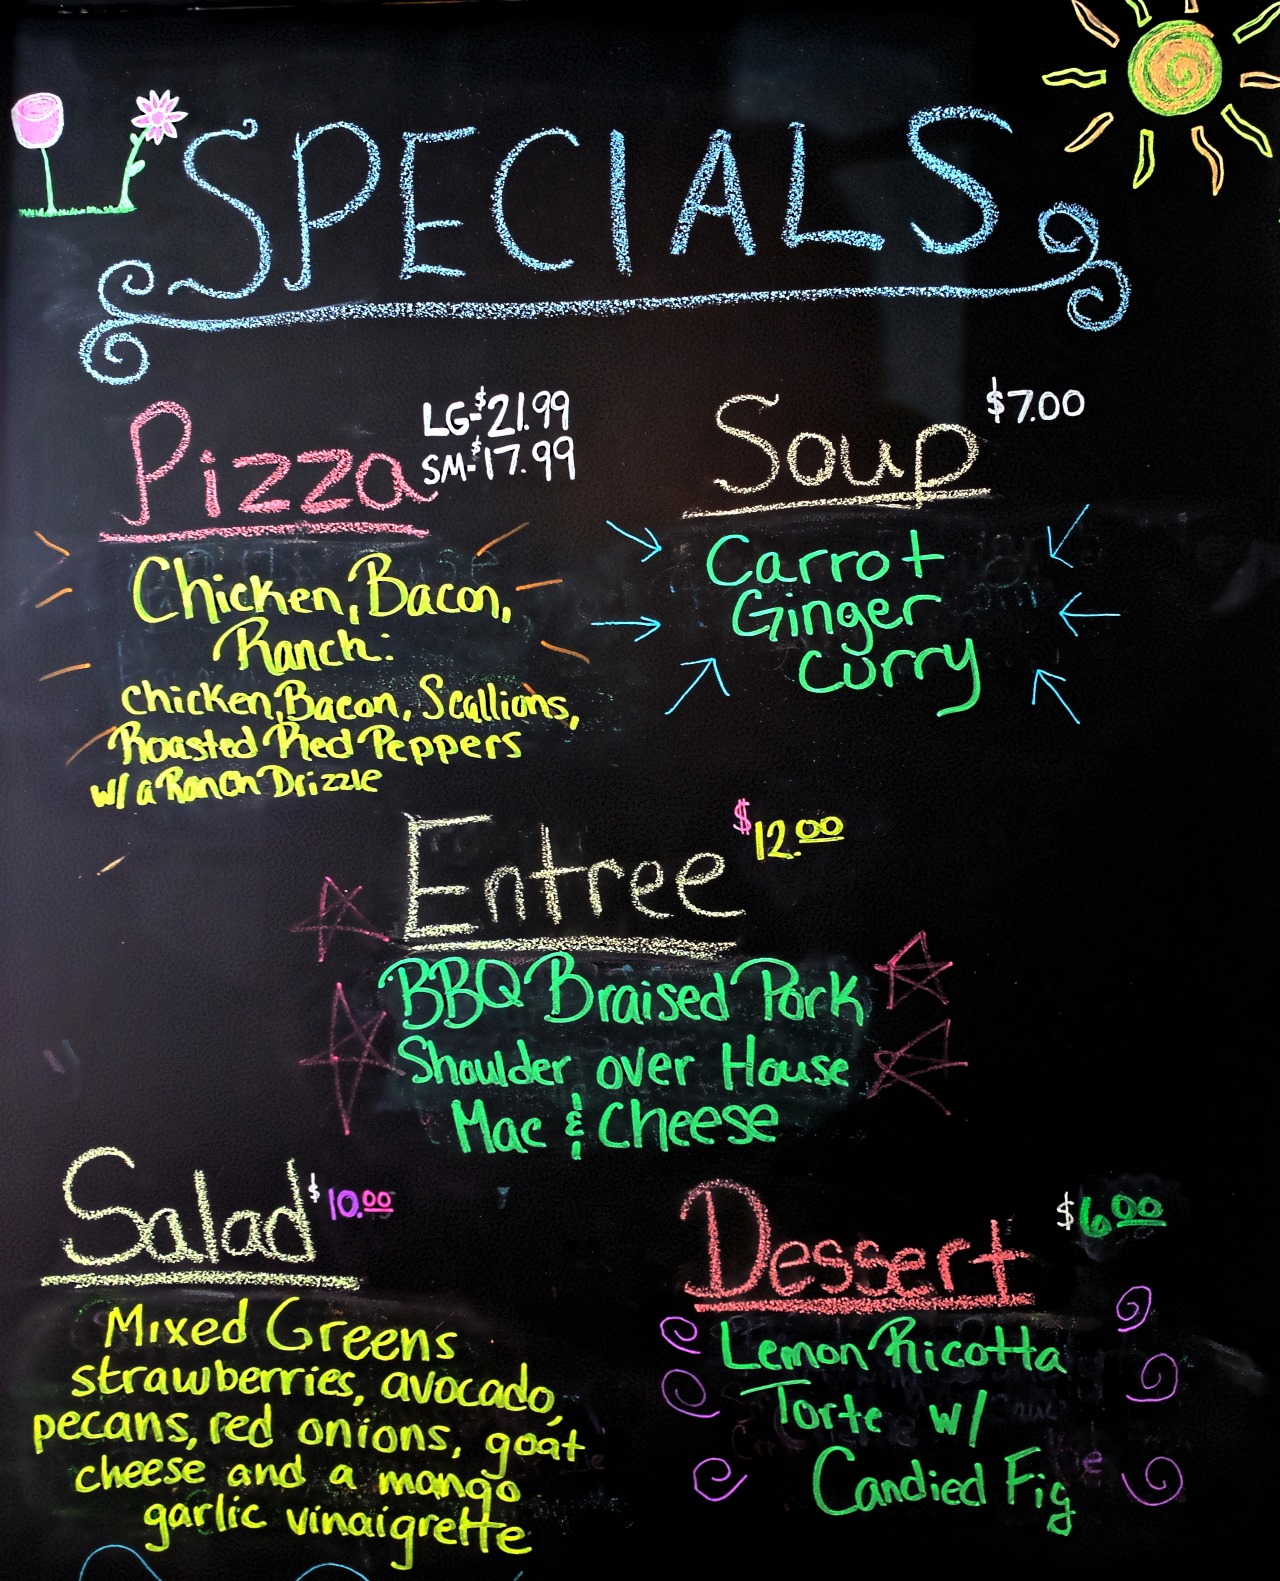 SPECIALS
Pizza
LG-$21.99
SM-$17.99
Chicken, Bacon,
Ranch:
Chicken, Bacon, Scallions,
Roasted Red Peppers
w/ a Ranch Drizzle
Soup
$7.00
Carrot
Ginger
Curry
Entree
$12.00
BBQ Braised Pork
Shoulder over House
Mac & Cheese
Salad
$10.00
Mixed Greens
strawberries, avocado,
pecans, red onions, goat
cheese and a mango
garlic vinaigrette
Dessert
$6.00
Lemon Ricotta
Torte w/
Candied Fig